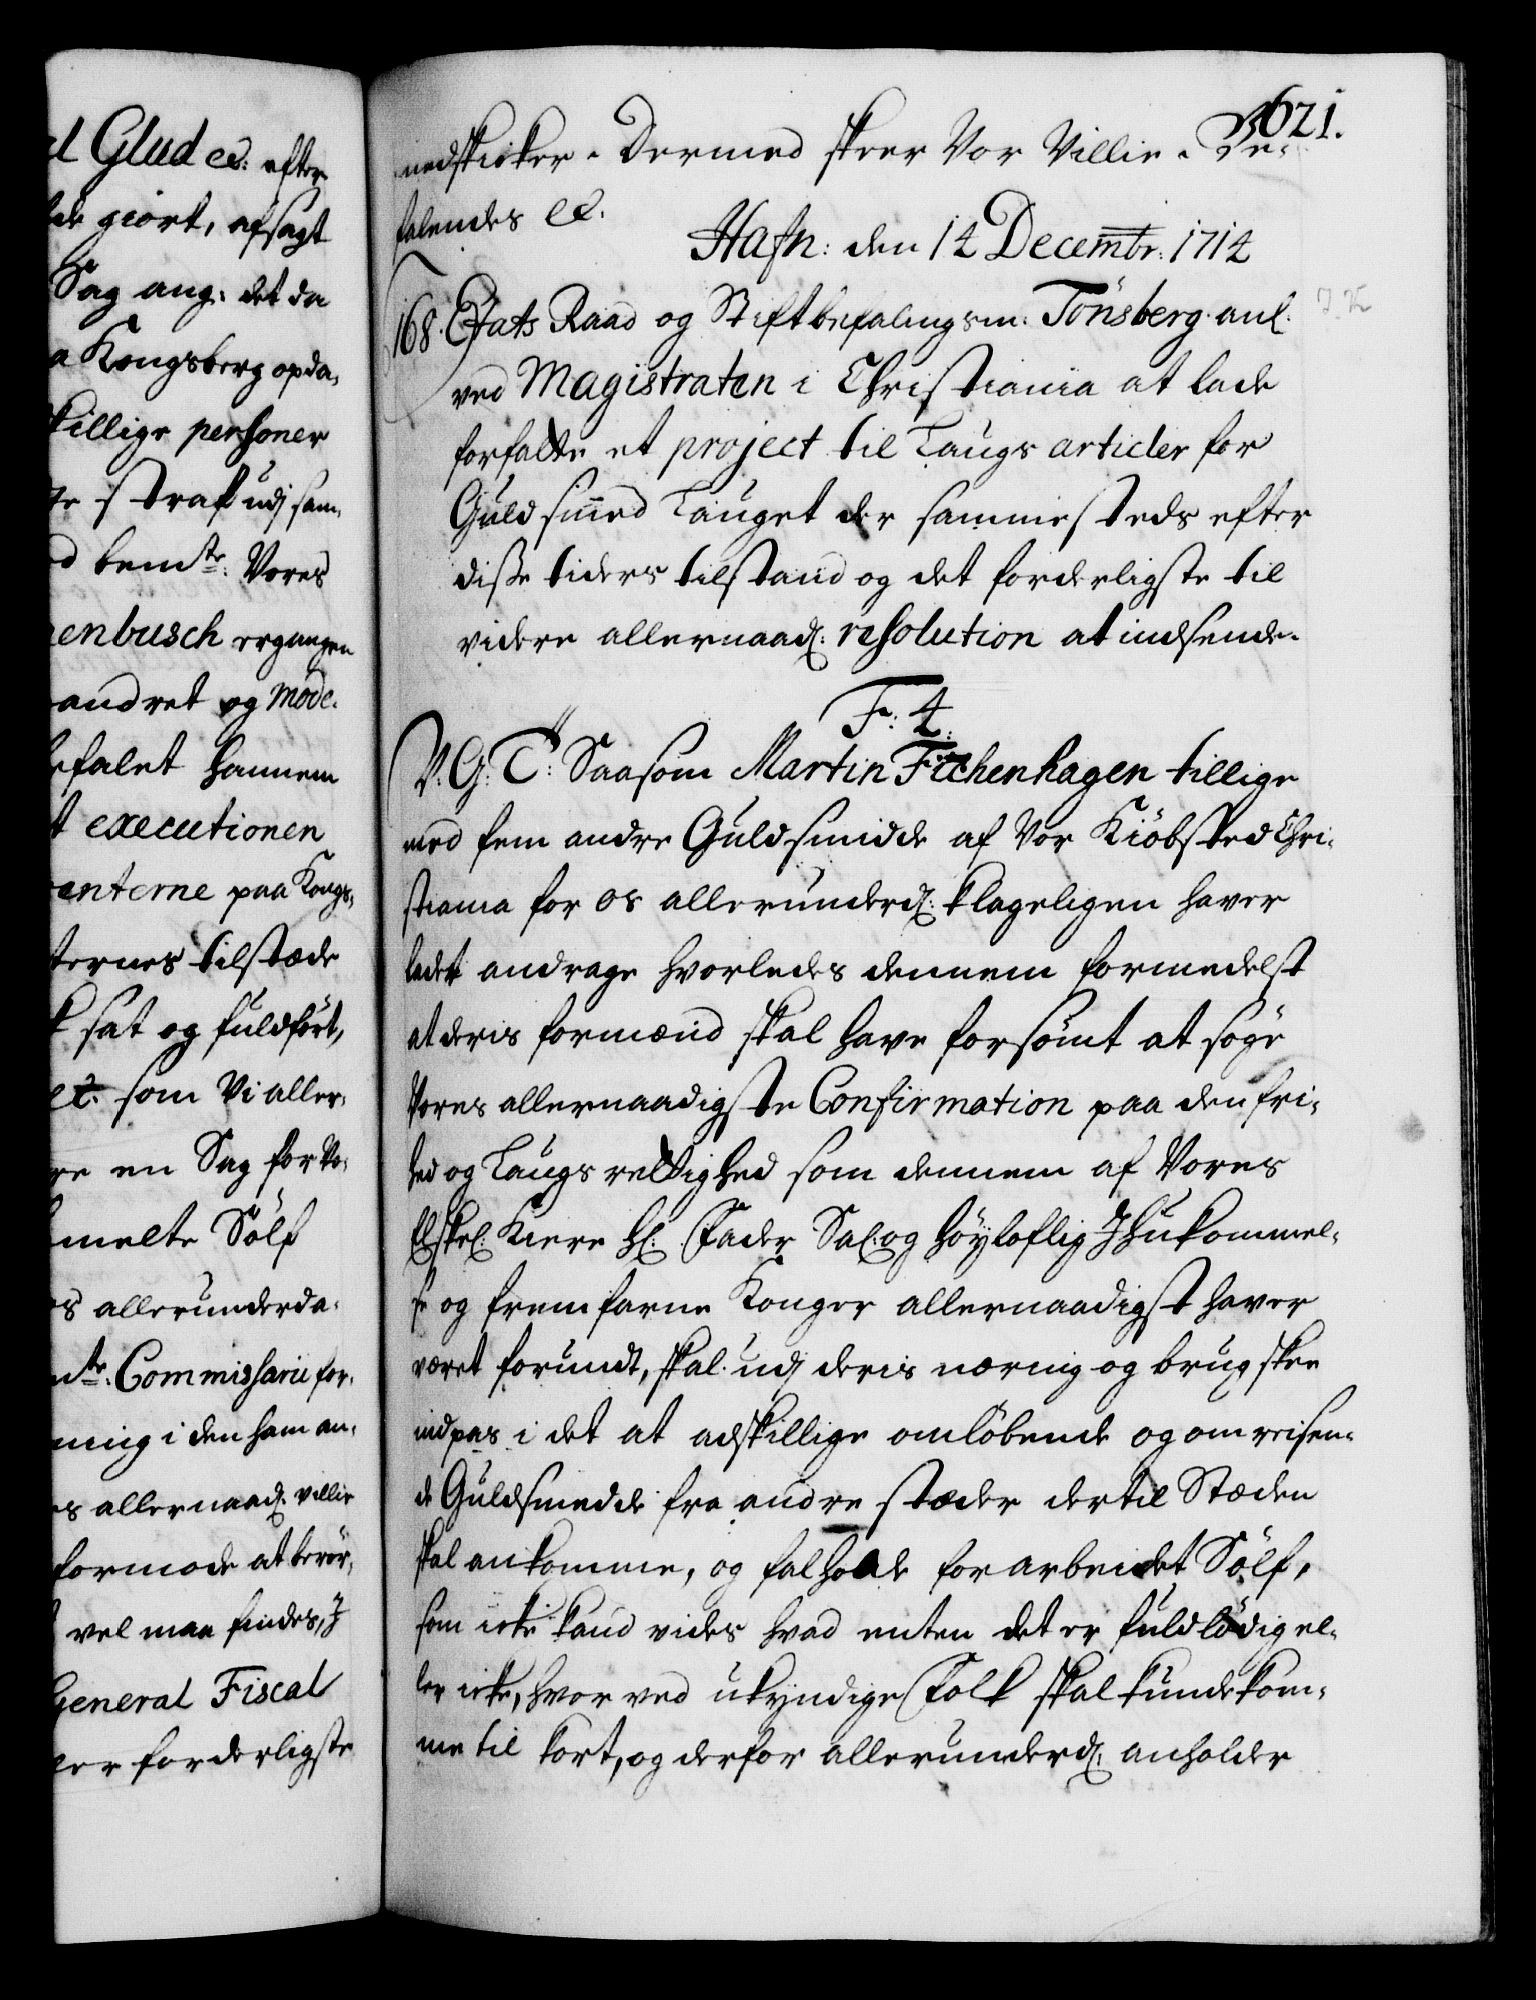 el Glud ec: efter
de giort, afsagt
Sag ang: det da
a Kongsberg opda-
skillige personer
te straf udj sam-
d bemte: Vores
enbusch ergangen
andret og mode-
befalet hannem
t executionen
anterne paa Kongs-
ternes tilstæde
k sat og fuldført,
et. som Vi aller-
re en Sag for Vo-
melte Sölf
os allerunderda-
nte: Commissarii for-
ning i den ham an-
es allernaad: villie
formode at berör-
vel maa findes, J
General Fiscal
ler forderligste
621.
nedskicker. Dermed skeer Vor Villie. Be-
falendes ec.
Hafn: den 14 Decembr: 1714
168. Etats Raad og Stiftbefalingsm: Tönsberg anl:
ved Magistraten i Christiania at lade
forfatte et project til Laugs articler for
Guldsmed Lauget der sammesteds efter
disse tiders tilstand og det forderligste til
videre allernaad: resolution at indsende.
F: 4.
V. G: T: Saasom Martin Fichenhagen tillige
med fem andre Guldsmidde af Vor Kiöbsted Chri-
stiania for os allerunderd: klageligen haver
ladet andrage hvorledes dennem formedelst
at deris formænd skal have forsömt at söge
Vores allernaadigste Confirmation paa den fri-
hed og Laugs rettighed som dennem af Vores
Elskel: Kiere H: Fader Sal: og höyloflig Jhukommel-
se og fremfarne Konger allernaadigst haver
været forundt, skal udj deris næring og brug skee
indpas i det at adskillige omlöbende og omreisen-
de Guldsmedde fra andre stæder dertil Stæden
skal ankomme, og falholde forarbeidet Sölf,
som icke kand vides hvad enten det er fuldlödig el-
ler icke, hvorved ukyndige Folk skal kunde kom-
me til kort, og derfor allerunderd: anholder